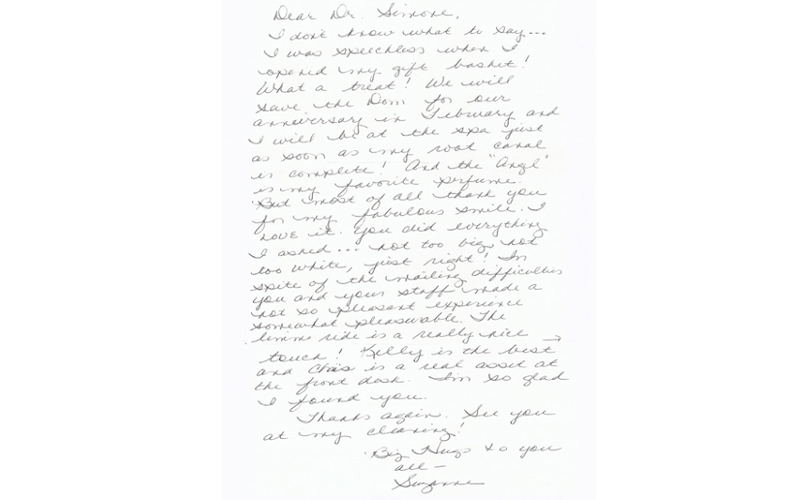 Dear Dr. Simone,
I don't know what to say...
I was speechless when I
opened my gift basket!
What a treat! We will
save the Dom for our
anniversary in February and
I will be at the spa just
as soon as my root canal
is complete! And the "Angel"
is my favorite perfume.
But most of all thank you
for my fabulous smile. I
love it. You did everything
I asked... not too big, not
too white, just right! In
spite of the mailing difficulties
you and your staff made a
not so pleasant experience
somewhat pleasurable. The
limo ride is a really nice →
touch! Kelly is the best
and Chris is a real asset at
the front desk. I'm so glad
I found you.
Thanks again. See you
at my cleaning!
Big Hugs to you
all -
Suzanne